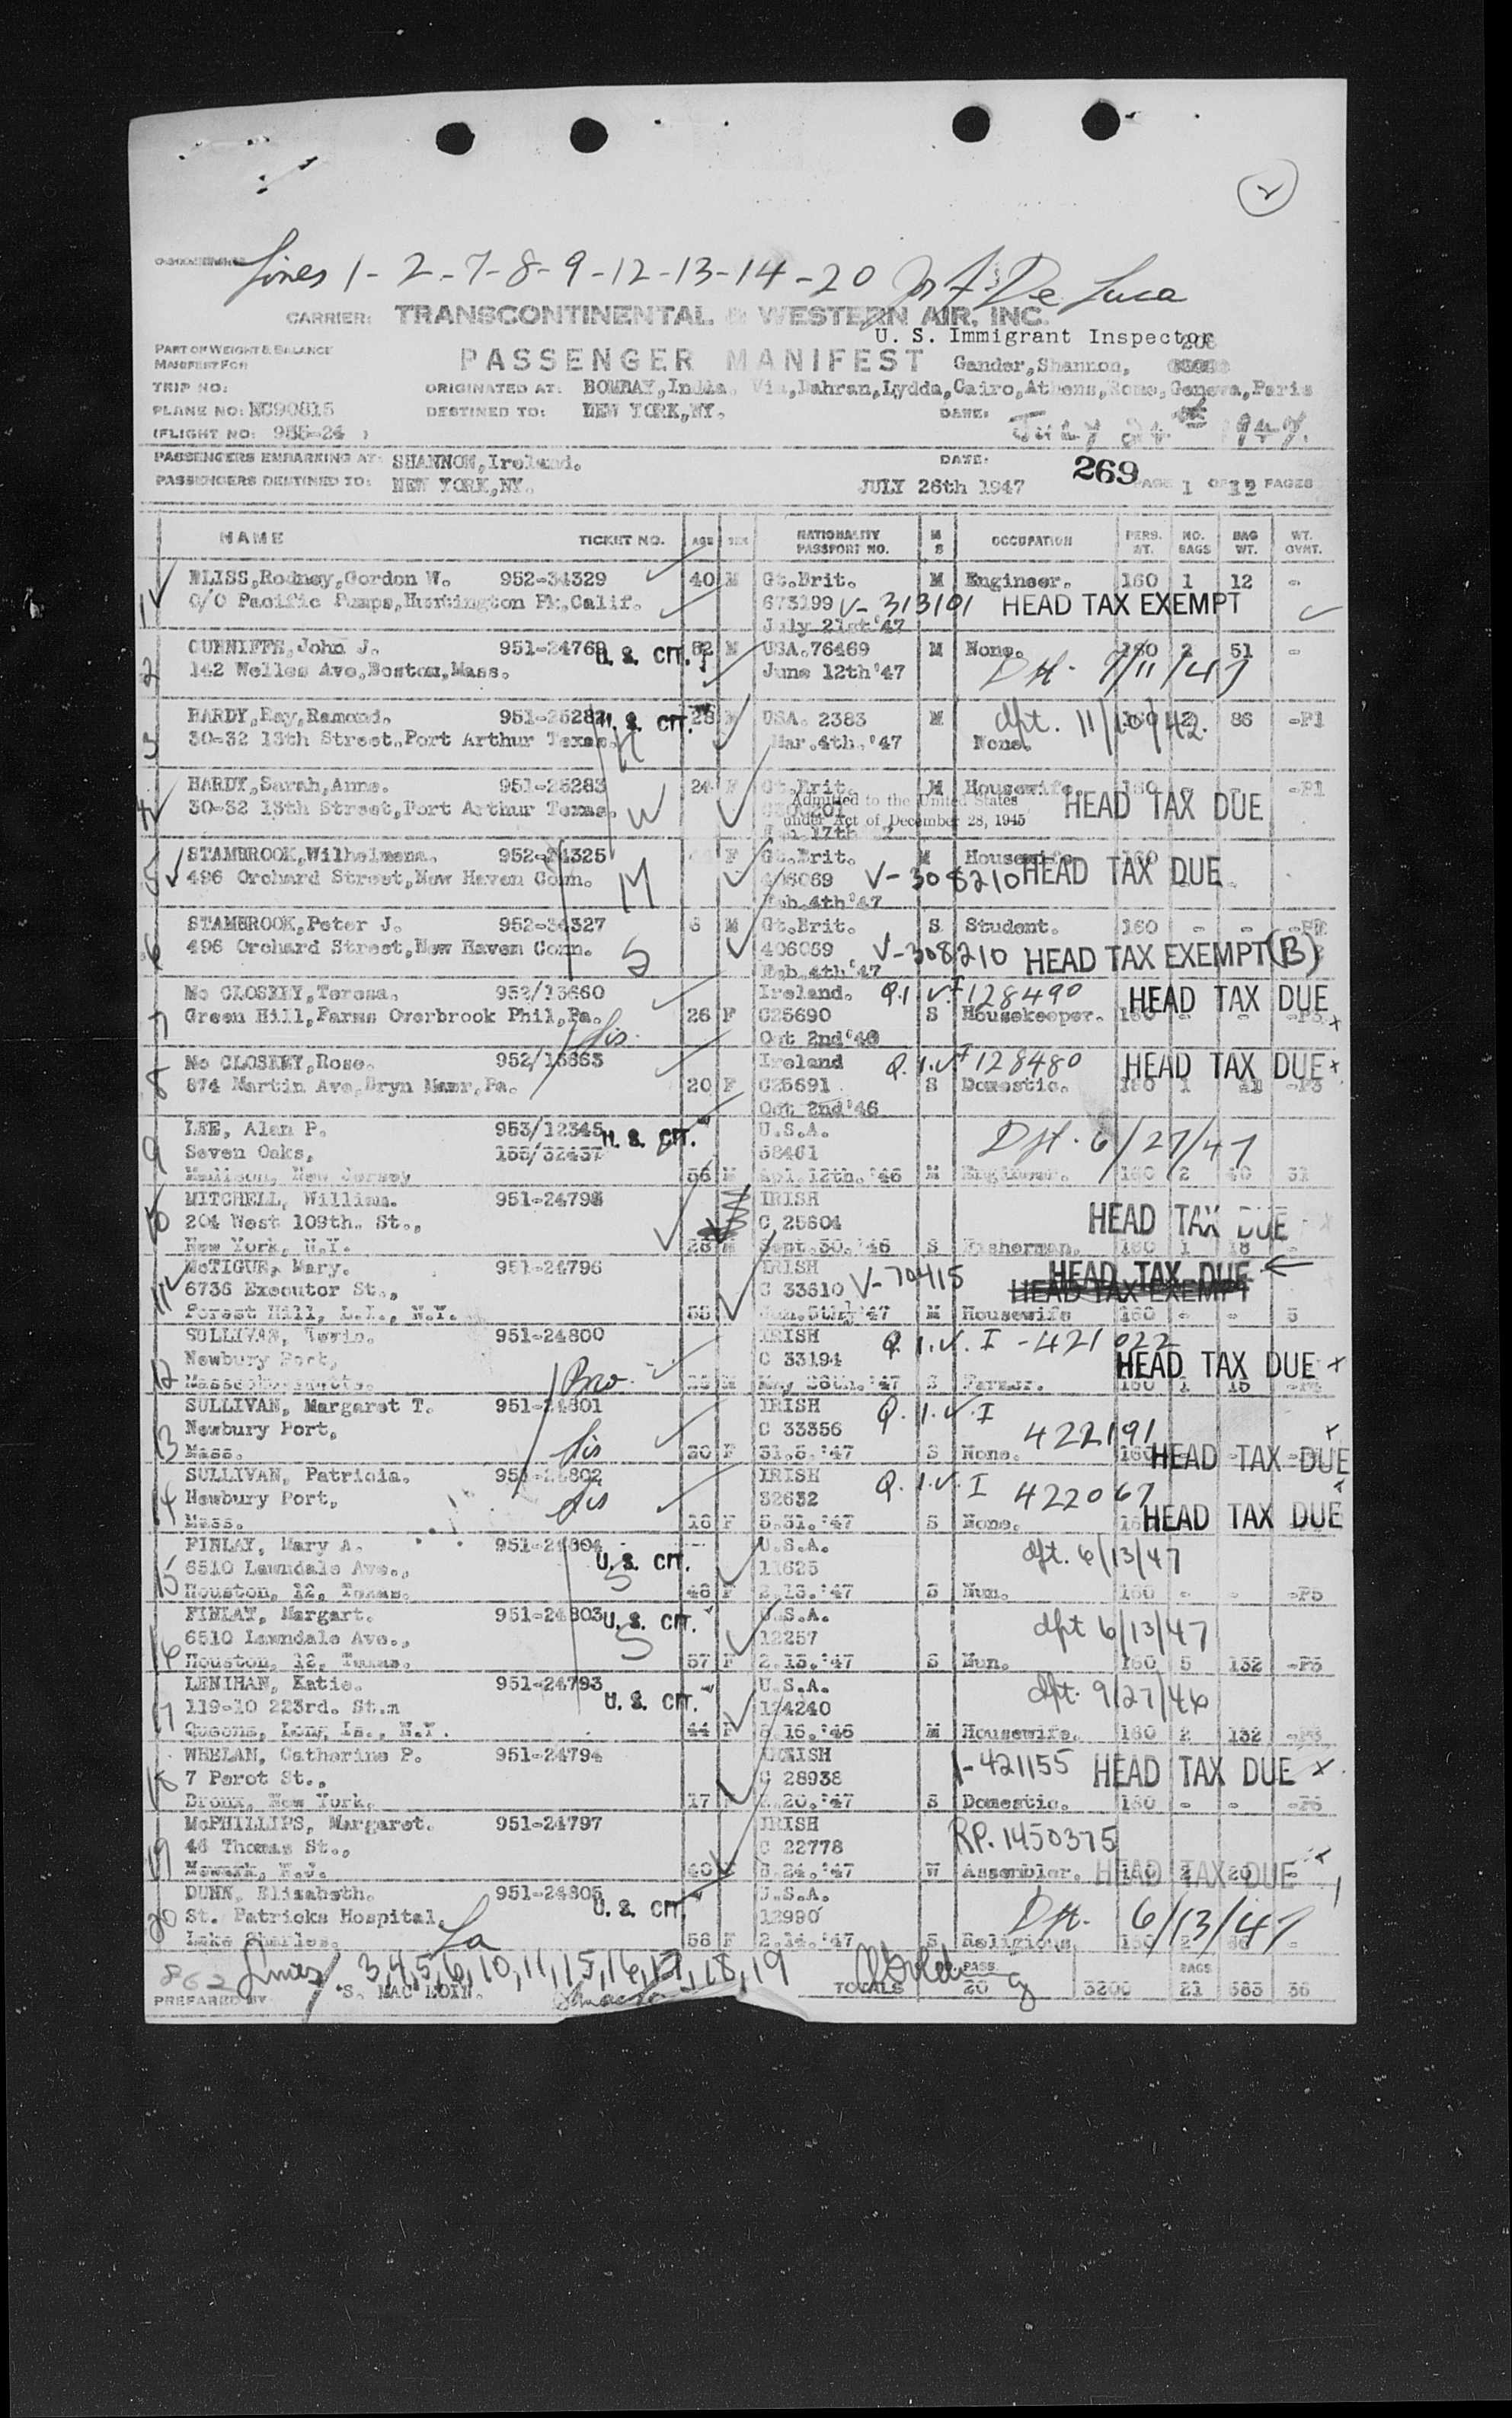 2
Lines 1-2-7-8-9-12-13-14-20 De Luca
CARRIER: TRANSCONTINENTAL & WESTERN AIR, INC.
U. S. Immigrant Inspector
PART OF WEIGHT & BALANCE
MANIFEST FOR
PASSENGER MANIFEST Gander,Shannon,
TRIP NO: ORIGINATED AT: BOMBAY,India. Via,Dahran,Lydda,Cairo,Athens,Rome,Geneva,Paris
PLANE NO: NC90815 DESTINED TO: NEW YORK,NY. DATE: July 24th 1947.
(FLIGHT NO: 955-24 )
PASSENGERS EMBARKING AT: SHANNON,Ireland. DATE:
PASSENGERS DESTINED TO: NEW YORK,NY. JULY 26th 1947 269 PAGE 1 OF 12 PAGES
NAME TICKET NO. AGE SEX NATIONALITY PASSPORT NO. M S OCCUPATION PERS. WT. NO. BAGS BAG WT. WT. OVNT.
1 BLISS,Rodney,Gordon W. 952-34329 40 M Gt.Brit. M Engineer. 160 1 12 -
C/O Pacific Pumps,Huntington Pk,Calif. 673199 V-313101 HEAD TAX EXEMPT
July 21st '47
2 CUNNIFFE,John J. 951-24769 U. S. CIT. 62 M USA.76469 M None. 160 2 51 -
142 Welles Ave,Boston,Mass. June 12th '47 Dpt. 7/11/47
3 HARDY,Ray,Ramond. 951-25282 U. S. CIT. 28 M USA. 2383 M dpt. 11/10/42. 86 -P1
30-32 13th Street,Port Arthur Texas. H Mar.4th.'47 None.
4 HARDY,Sarah,Anne. 951-25283 24 F Gt.Brit. M Housewife. 160 - - -P1
30-32 13th Street,Port Arthur Texas. W Admitted to the United States HEAD TAX DUE
under Act of December 28, 1945
5 STAMBROOK,Wilhelmena. 952-34325 F Gt.Brit. M Housewife 160
496 Orchard Street,New Haven Conn. M 406069 V-308210 HEAD TAX DUE
Feb.4th'47
6 STAMBROOK,Peter J. 952-34327 6 M Gt.Brit. S Student. 160 - -
496 Orchard Street,New Haven Conn. S 406069 V-308210 HEAD TAX EXEMPT (B)
Feb.4th'47
7 Mc CLOSKEY,Teresa. 952/13660 Ireland. Q.I.V. I 128490 HEAD TAX DUE
Green Hill,Farms Overbrook Phil,Pa. 26 F C25690 S Housekeeper. 160 - - -P3 x
Sis. Oct 2nd '46
8 Mc CLOSKEY,Rose. 952/13663 Ireland Q.I.V. I 128480 HEAD TAX DUE x
874 Martin Ave,Bryn Mawr,Pa. 20 F C25691 S Domestic. 160 1 41 -P3
Oct 2nd '46
9 LEE, Alan P. 953/12345 U. S. CIT. U.S.A. Dpt. 6/27/47
Seven Oaks, 155/32437 58461
Madison, New Jersey 56 M Apl.12th.'46 M Engineer. 160 2 40 31
10 MITCHELL, William. 951-24795 IRISH
204 West 109th. St., C 25604 HEAD TAX DUE
New York, N.Y. 28 M Sept.30.'46 S Fisherman. 160 1 18 -
11 McTIGUE, Mary. 951-24796 IRISH HEAD TAX DUE ←
6736 Executor St., C 33610 V-70415 HEAD TAX EXEMPT
Forest Hill, L.I., N.Y. 55 Jun.5th.'47 M Housewife 160 - - 5
12 SULLIVAN, 951-24800 IRISH Q.I.V. I -421022
Newbury Port, C 33194 HEAD TAX DUE x
Massachusetts. Bro. M May 26th.'47 S Farmer. 160 1 15
13 SULLIVAN, Margaret T. 951-24801 IRISH Q.I.V. I
Newbury Port, C 33356 422191 x
Mass. Sis 20 F 31.5.'47 S None. 160 HEAD TAX DUE
14 SULLIVAN, Patricia. 951-24802 IRISH Q.I.V. I 422067
Newbury Port, Sis 32632 x
Mass. 18 F 5.31.'47 S None. HEAD TAX DUE
15 FINLAY, Mary A. 951-24804 U.S.A.
6510 Lawndale Ave., U. S. CIT. S 11625 dpt. 6/13/47
Houston, 12, Texas. 48 F 2.13.'47 S Nun. 160 - - -P5
16 FINLAY, Margart. 951-24803 U. S. CIT. U.S.A.
6510 Lawndale Ave., S 12257 dpt 6/13/47
Houston, 12, Texas. 57 F 2.13.'47 S Nun. 160 5 132 -P5
17 LENIHAN, Katie. 951-24793 U.S.A.
119-10 223rd. St.m U. S. CIT. 124240 dpt. 9/27/46
Queens, Long Is., N.Y. 44 F 8.16.'46 M Housewife. 160 2 132
18 WHELAN, Catherine P. 951-24794 IRISH
7 Perot St., C 28938 I-421155 HEAD TAX DUE x
Bronx, New York. 17 20.'47 S Domestic. 160 - - -P6
19 McPHILLIPS, Margaret. 951-24797 IRISH
46 Thomas St., C 22778 RP. 1450375
Newark, N.J. 40 F 5.24.'47 W Assembler. HEAD TAX DUE 160 2 20 x
20 DUNN, Elizabeth. 951-24805 U.S.A.
St. Patricks Hospital, U. S. CIT. 12990 Dpt. 6/13/47
Lake Charles. La 58 F 2.14.'47 S Religious 160 2 -
862 Lines 3,4,5,6,10,11,15,16,17,18,19
PREPARED BY S. MAC LOIN. TOTALS PASS. 20 3200 BAGS 21 583 36